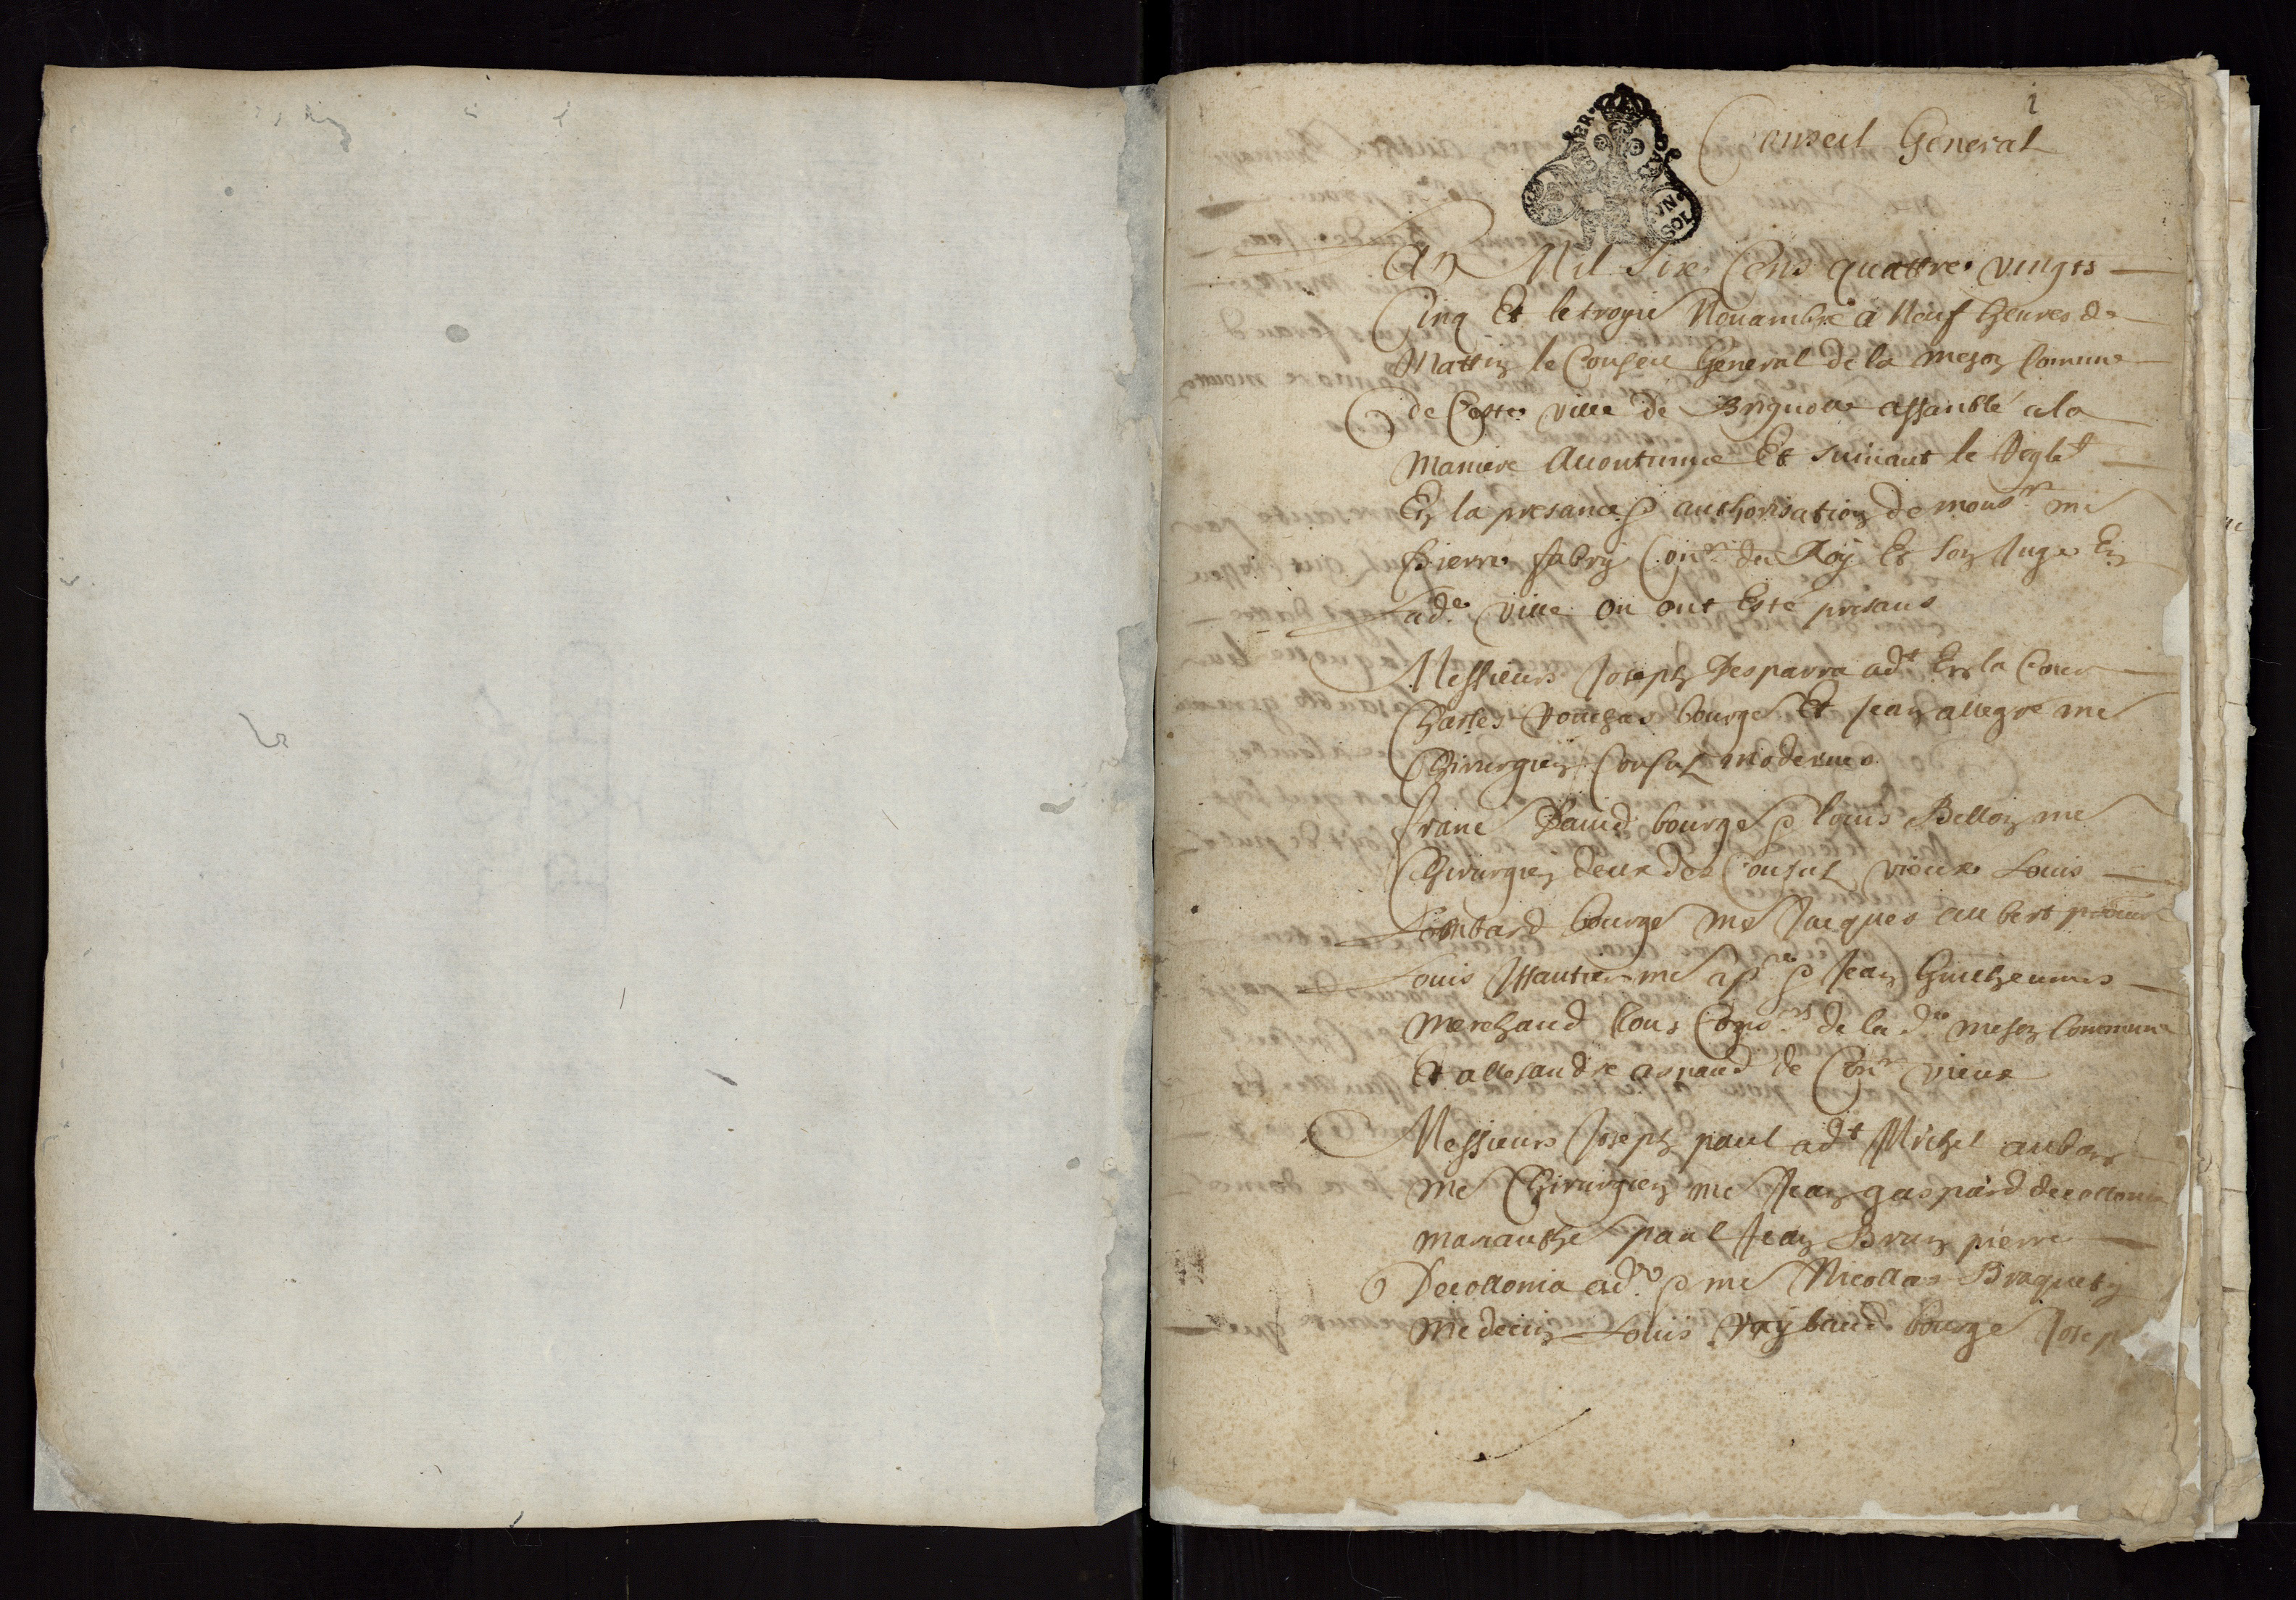 1
Conseil General
VN SOL
An Mil Sixs Cens quattres vingts
Cinq Et le troyie Nouambre a Neuf heures de
Mattin le Conseil General de la meson Comune
de Ceste ville de Brignolle assanblé a la
maniere accoutumee Et suiuant le Reglet
En la presance & authorisation de monsr me
Pierre fabry Conr du Roy Et son Juge En
lade ville ou ont Esté presans
Messieurs Joseph Desparra adt En la Cour
Charles bourge Et Jean allegre me
Chirurgien Consul modernes
franc Dauid bourge & louis Bellon me
Chirurgien deux des Consul vieux Louis
Lombard bourge me Jacques aubert
Louis me apre & Jean Guilheumes
merchand tous de la de meson Commune
Et allexandre de Conr vieux
Messieurs Joseph paul adt Michel aubert
me Chirurgien me Jean gaspard decollonia
paul Jean Brun pierre
Decollonia ad & me Nicollas Braquety
medecin Louis Raybaud bourge Josep